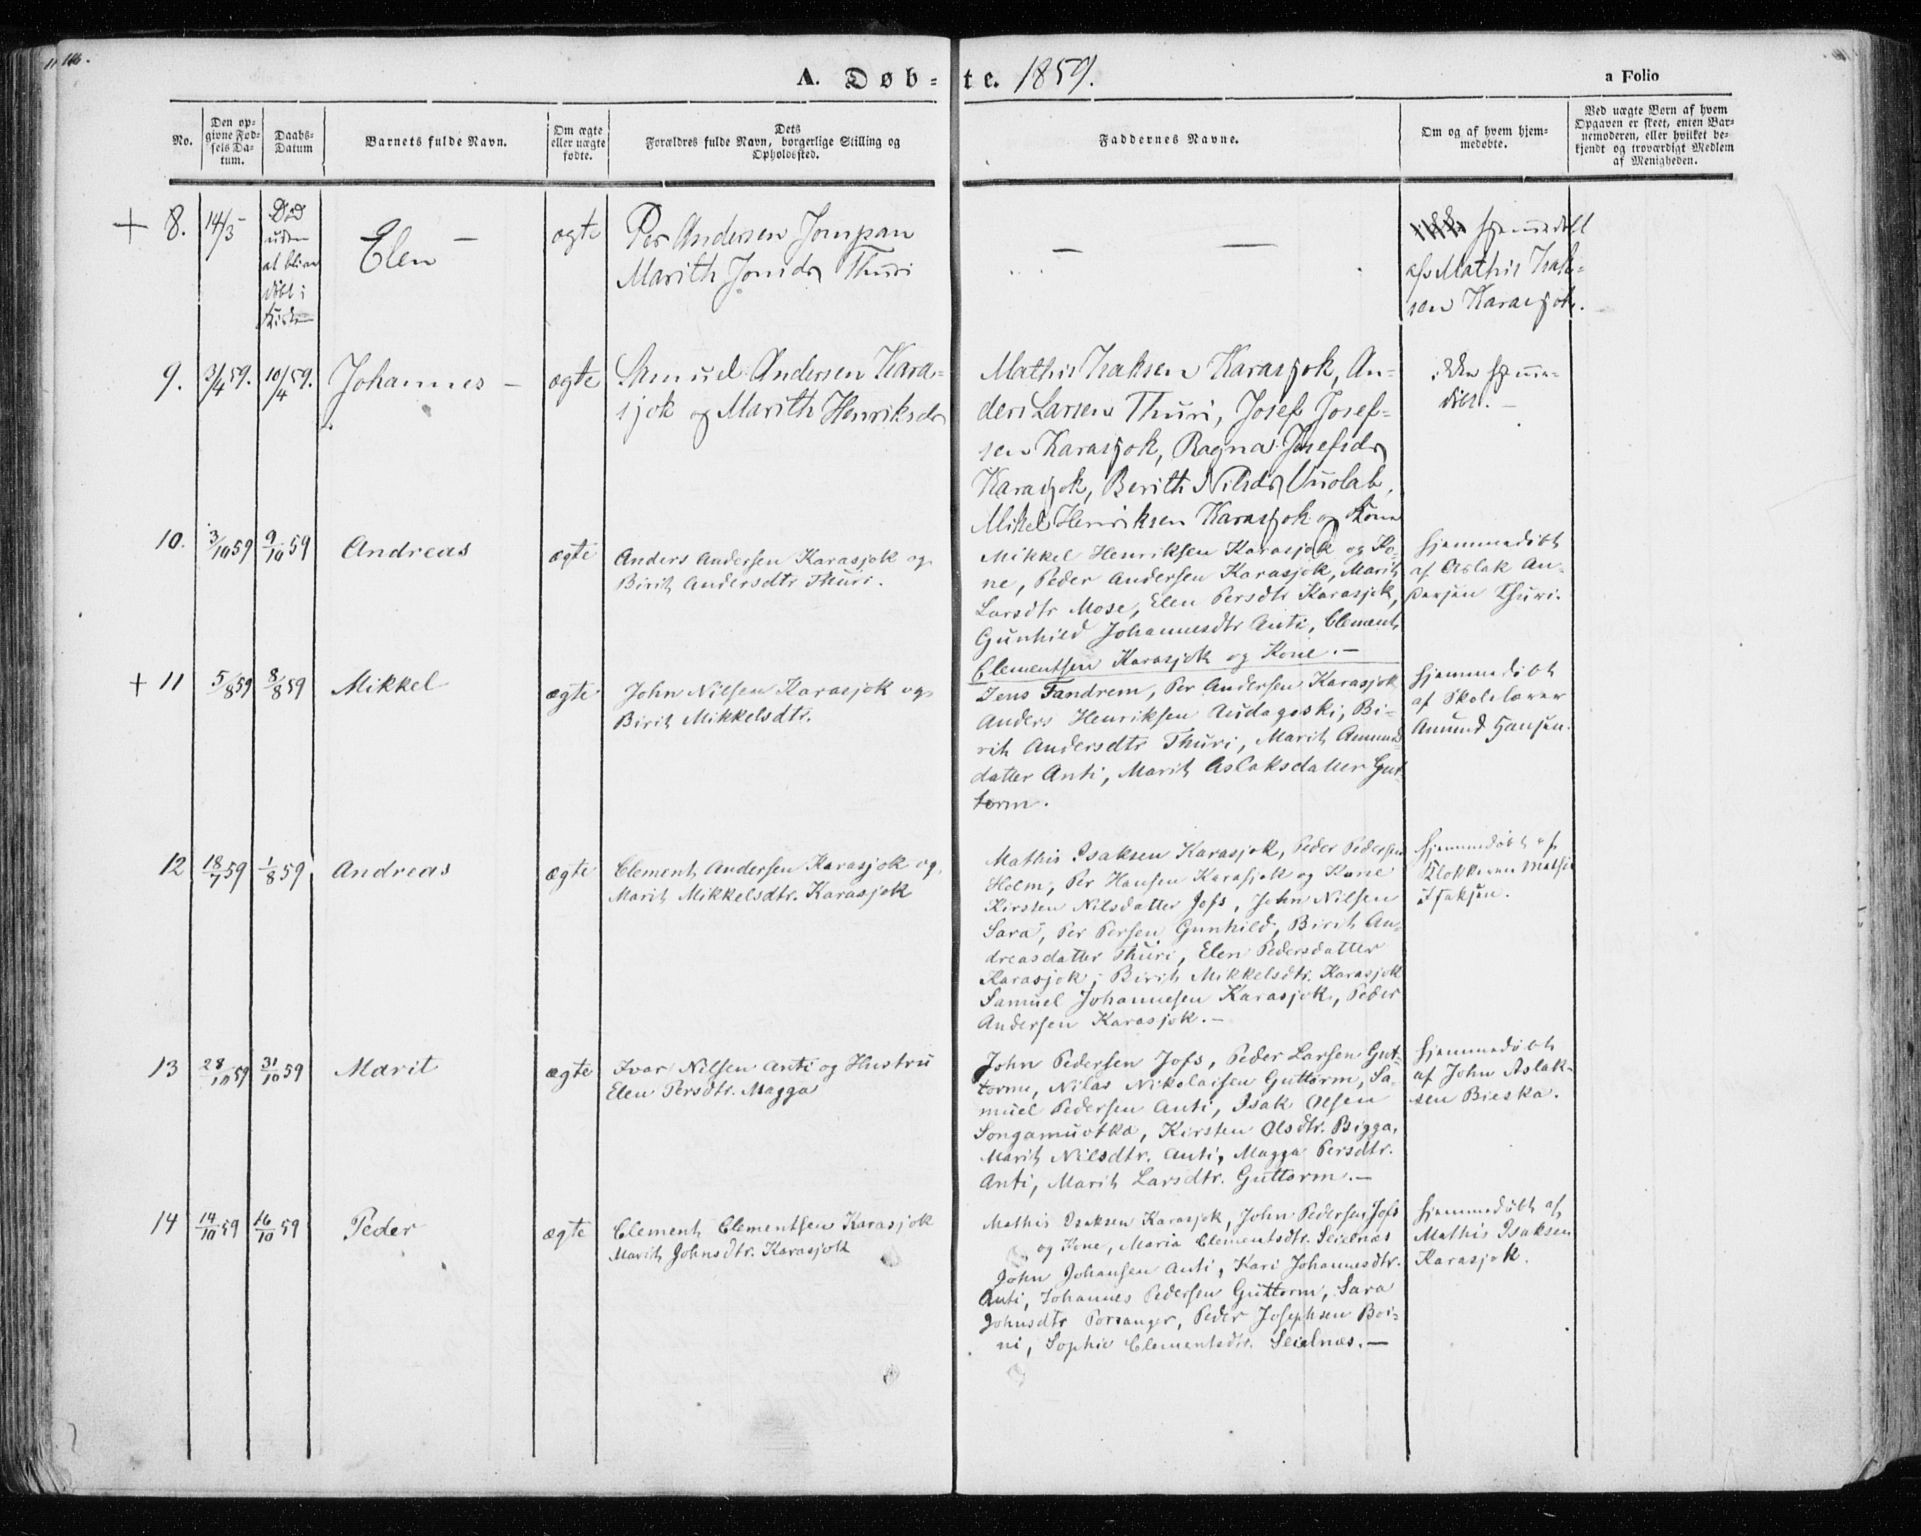 116.
A. Døb-te. 1859.
a Folio
No.
Den op-
givne Fød-
sels Da-
tum.
Daabs-
Datum
Barnets fulde Navn.
Om ægte
eller uægte
fødte.
Dets
Forældres fulde Navn, borgerlige Stilling og
Opholdssted.
Faddernes Navne.
Om og af hvem hjem-
medøbte.
Ved uægte Børn af hvem
Opgaven er skeet, enten Bar-
nemoderen, eller hvilket be-
kjendt og troværdigt Medlem
af Menigheden.
+ 8. 14/3
Død
uden
at blive
døbt i
Kirken
Elen –
ægte
Per Andersen Jompan
Marith Jonsdr Thuri
— —
hjemmedøbt
af Mathis Isak-
sen Karasjok.
9. 3/4 59. 10/4 59. Johannes –
ægte
Samuel Andersen Kara-
sjok og Marith Henriksdr
Mathis Isaksen Karasjok, An-
ders Larsen Thuri, Josef Josef-
sen Karasjok, Ragna Josefsdr
Karasjok, Berith Nilsdr Vuolab,
Mikel Henriksen Karasjok og Kone
ikke hjemme-
døbt. –
10. 3/10 59 9/10 59 Andreas
ægte
Anders Andersen Karasjok og
Birit Andersdtr Thuri.
Mikkel Henriksen Karasjok og Ko-
ne, Peder Andersen Karasjok, Marit
Larsdtr Mose, Elen Persdtr Karasjok,
Gunhild Johannesdtr Anti, Clement
Clementsen Karasjok og Kone. –
hjemmedøbt
af Aslak An-
dersen Thuri.
+ 11 5/8 59 8/8 59 Mikkel
ægte
John Nilsen Karasjok og
Birit Mikkelsdtr.
Jens Fandrem, Per Andersen Karasjok
Anders Henriksen Audagoski, Bi-
rit Andersdtr Thuri, Marit Amunds
datter Anti, Marit Aslaksdatter Gut-
torm.
hjemmedøbt
af Skolelærer
Amund Hansen.
12 18/7 59 1/8 59 Andreas
ægte
Clement Andersen Karasjok og
Marit Mikkelsdtr. Karasjok
Mathis Isaksen Karasjok, Peder Pedersen
Holm, Per Hansen Karasjok og Kone
Kirsten Nilsdatter Jofs, John Nilsen
Sara, Per Persen Gunhild, Birit An-
dreasdatter Thuri, Elen Pedersdatter
Karasjok, Birit Mikkelsdtr. Karasjok
Samuel Johannesen Karasjok, Peder
Andersen Karasjok. –
hjemmedøbt af
Klokkeren Mathis
Isaksen.
13 28/10 59 31/10 59 Marit
ægte
Ivar Nilsen Anti og Hustru
Elen Persdtr. Magga
John Pedersen Jofs, Peder Larsen Gut-
torm, Nilas Nikolaisen Guttorm, Sa-
muel Pedersen Anti, Isak Olsen
Songamuotka, Kirsten Olsdtr. Bigga,
Marit Nilsdtr. Anti, Magga Persdtr.
Anti, Marit Larsdtr. Guttorm. –
hjemmedøbt
af John Aslak-
sen Bieska.
14 14/10 59 16/10 59 Peder
ægte
Clement Clementsen Karasjok
Marit Johnsdtr. Karasjok
Mathis Isaksen Karasjok, John Pedersen Jofs
og Kone, Maria Clementsdtr. Seielnæs
John Johansen Anti, Kari Johannesdtr.
Anti, Johannes Pedersen Guttorm, Sara
Johnsdtr Porsanger, Peder Josephsen Boi-
ni, Sophie Clementsdtr. Seielnæs. –
hjemmedøbt af
Mathis Isaksen
Karasjok.